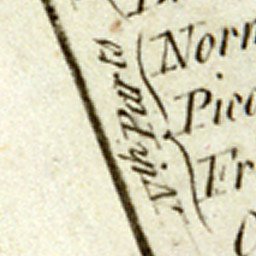 N.th Parts
Norm
Pic
Fr